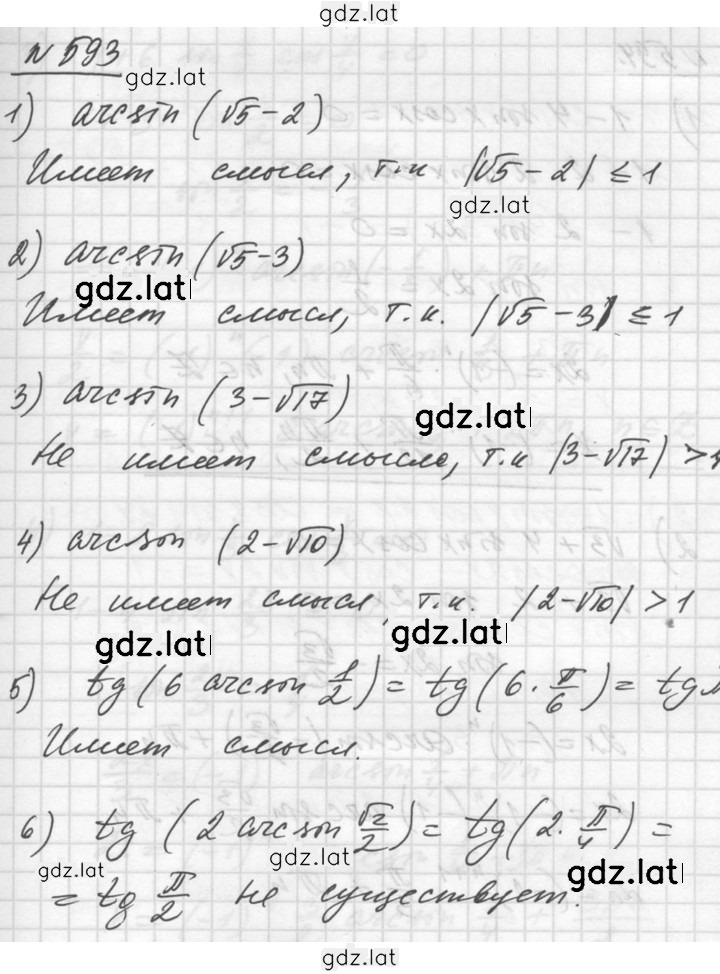 gdz.lat
№593
gdz.lat
1) arcsin (√5-2)
Имеет смысл, т.к |√5-2| ≤1
gdz.lat
2) arcsin (√5-3)
gdz.lat
Имеет смысл, т.к. |√5-3| ≤1
3) arcsin (3-√17)
gdz.lat
Не имеет смысла, т.к |3-√17| >1
4) arcsin (2-√10)
Не имеет смысл, т.к. |2-√10| >1
gdz.lat gdz.lat
5) tg(6 arcsin 1/2) = tg(6·π/6) = tg
Имеет смысл.
6) tg (2 arcsin √2/2) = tg(2·π/4) =
gdz.lat
gdz.lat gdz.lat
= tg π/2 не существует.
gdz.lat